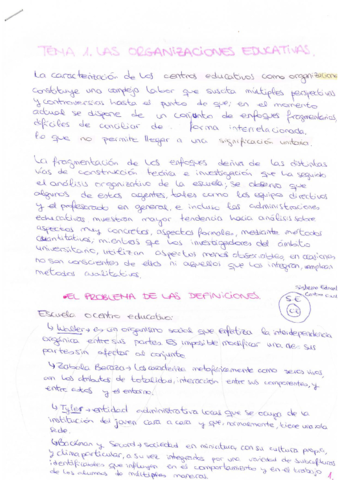 TEMA 1. LAS ORGANIZACIONES EDUCATIVAS.
La caracterización de los centros educativos como organizaciones
constituye una compleja labor que suscita múltiples perspectivas
y controversias hasta el punto de que, en el momento
actual se dispone de un conjunto de enfoques fragmentarios,
difíciles de conciliar de forma interrelacionada,
lo que no permite llegar a una significación unitaria.
La fragmentación de los enfoques deriva de las distintas
vías de construcción teórica e investigación que ha seguido
el análisis organizativo de la escuela, se observa que
algunos de estos agentes, tales como los equipos directivos
y el profesorado en general, e incluso las administraciones
educativas muestran mayor tendencia hacia análisis sobre
aspectos muy concretos, aspectos formales, mediante métodos
cuantitativos, mientras que los investigadores del ámbito
universitario, utilizan aspectos menos observables, en ocasiones
no son conscientes de ellos ni aquellos que los integran, emplean
métodos cualitativos.
EL PROBLEMA DE LAS DEFINICIONES
S.E
Escuela o centro educativo:
Waller → es un organismo social que enfatiza la interdependencia
orgánica entre sus partes. Es imposible modificar una de sus
partes sin afectar al conjunto
como seres vivos,
con los debates de totalidad, interacción entre sus componentes, y
entre estos y el entorno.
Tyler → entidad administrativa local que se ocupa de la
institución del joven cara a cara y que, normalmente, tiene una sola
sede.
y Secord → sociedad en miniatura con su cultura propia,
y clima particular, a su vez integrada por una variedad de subculturas
identificables que influyen en el comportamiento y en el trabajo
de los alumnos de múltiples maneras.
1.